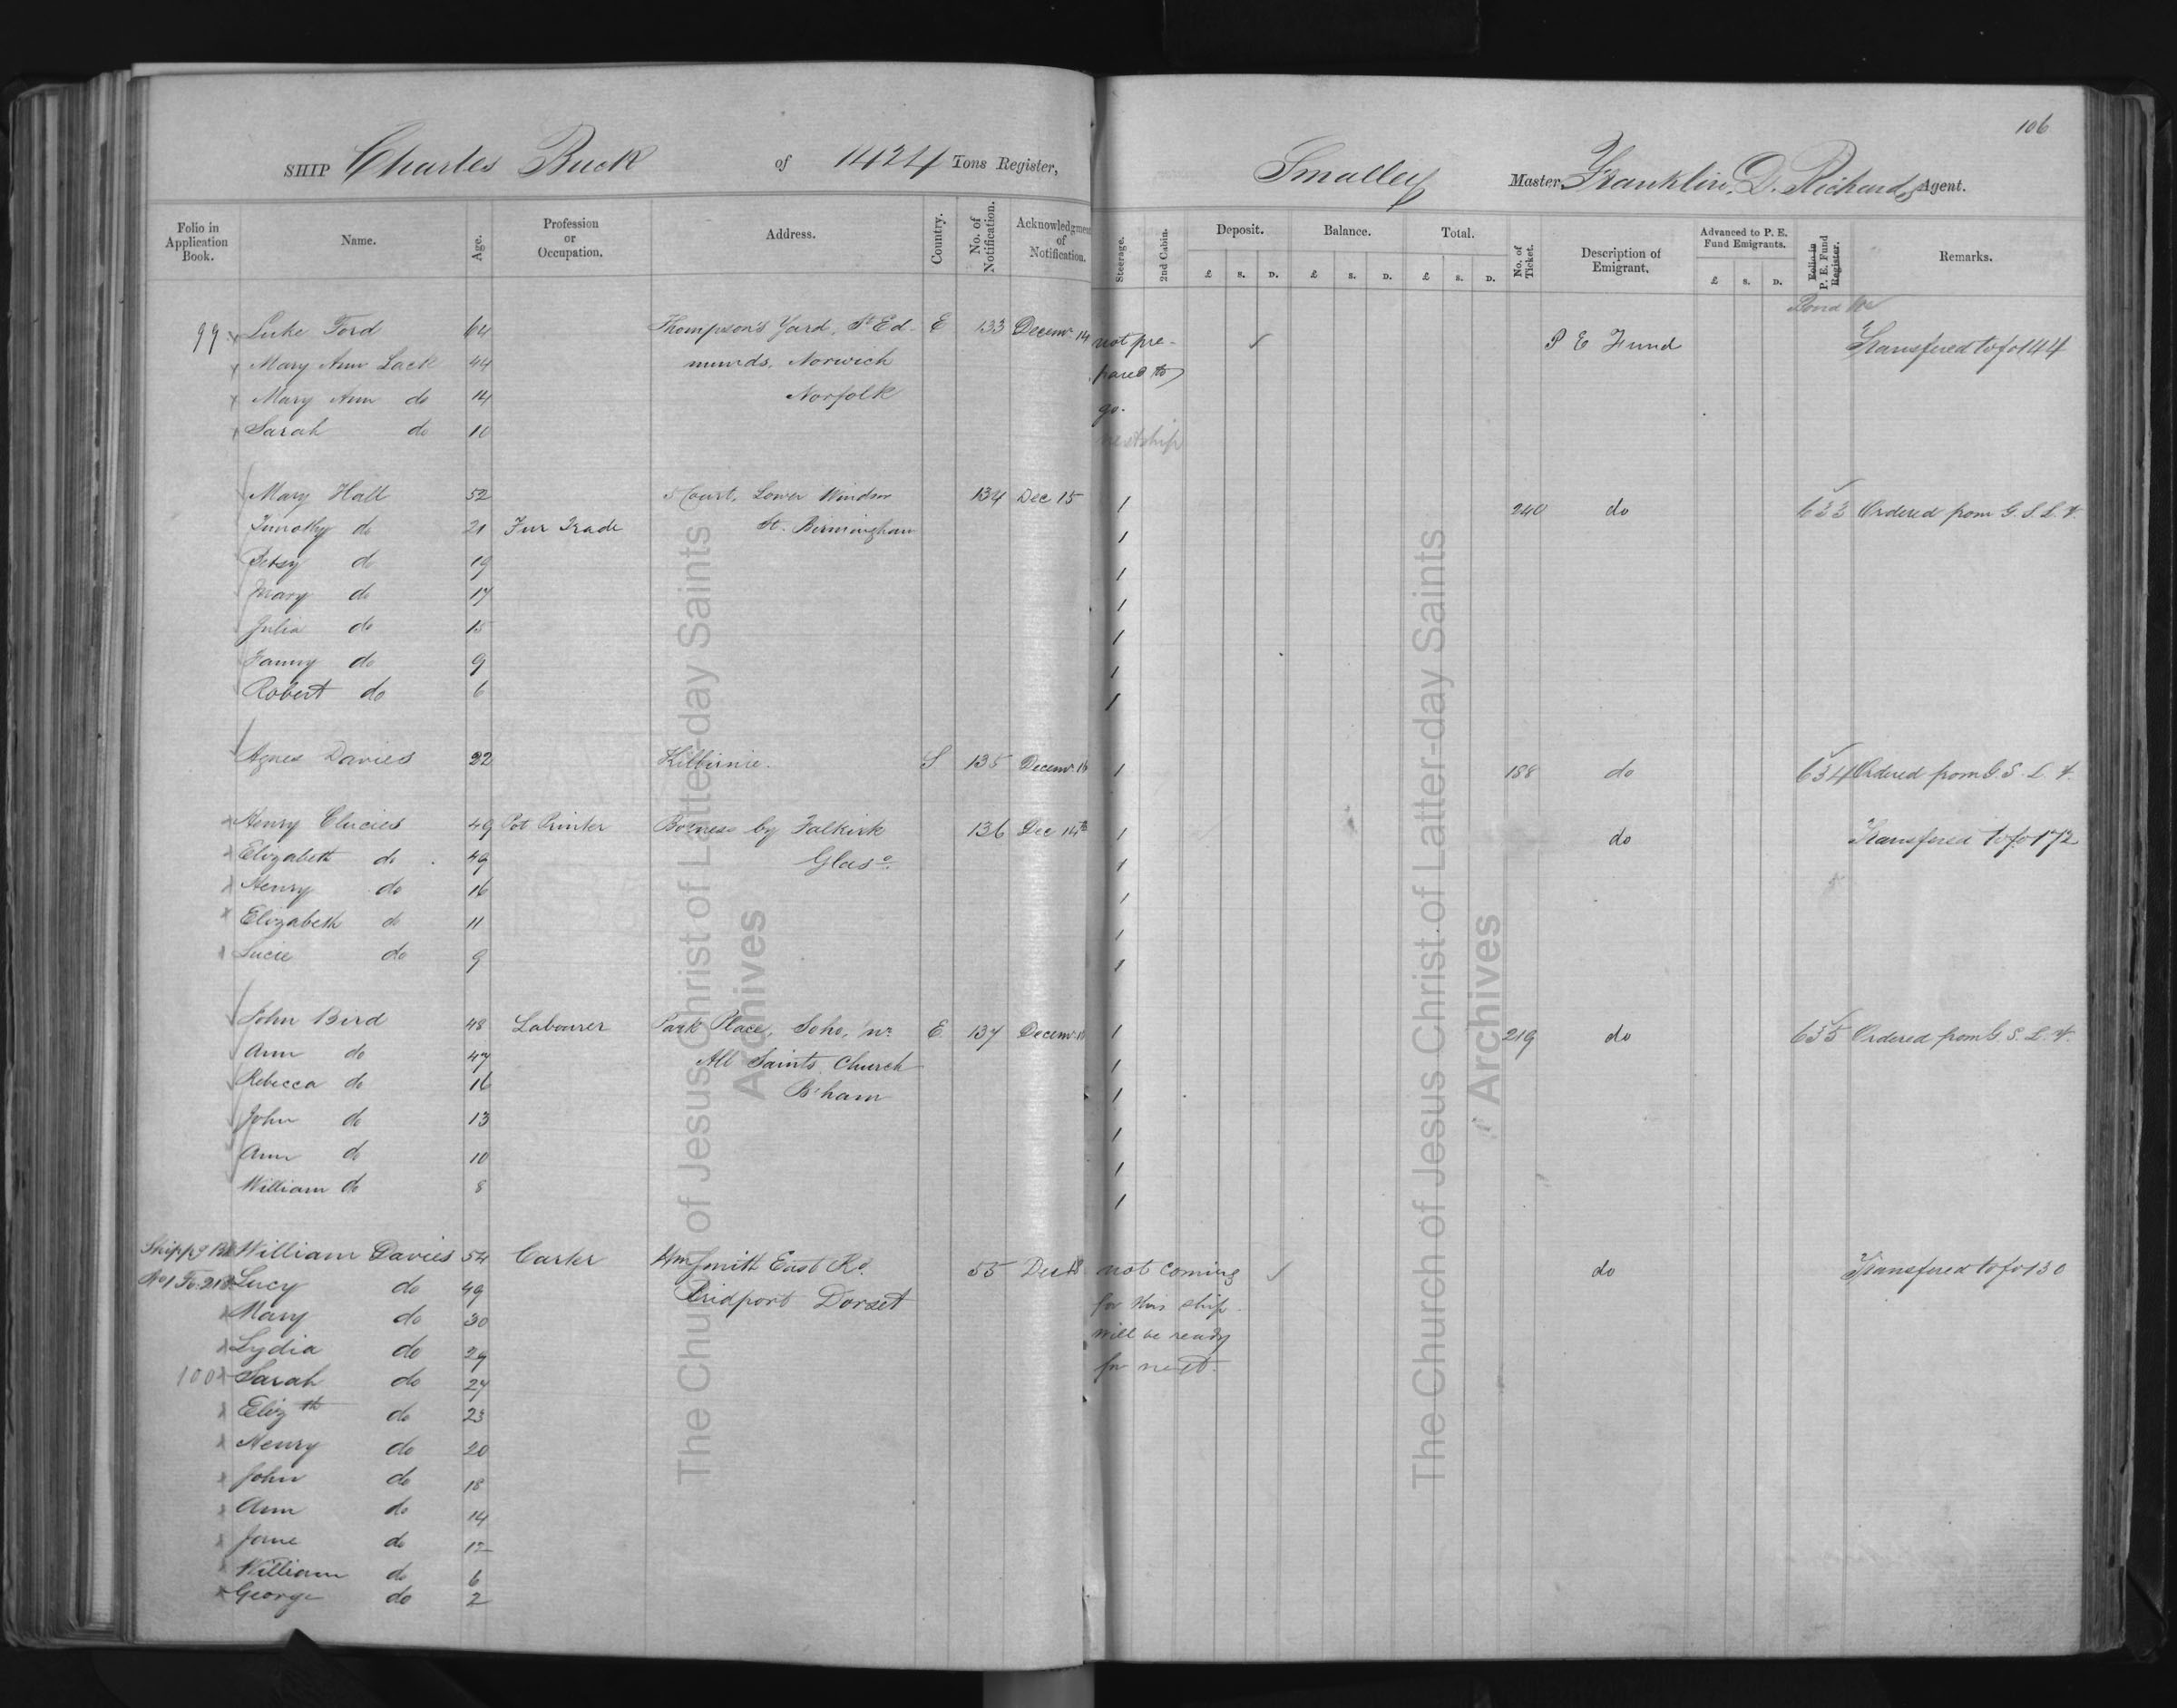 106
SHIP Charles Buck of 1424 Tons Register, Smalley Master, Franklin D. Richards Agent.
Folio in Application Book. Name. Age. Profession or Occupation. Address. Country. No. of Notification. Acknowledgment of Notification. Steerage. 2nd Cabin. Deposit. £ s. D. Balance. £ s. D. Total. £ s. D. No. of Ticket. Description of Emigrant. Advanced to P. E. Fund Emigrants. £ s. D. Folio in P. E. Fund Register. Remarks.
Bond No
99 x Luke Ford 64 Thompson's Yard, St Ed- E 133 Decemr 14 not pre- ✓ P E Fund Transfered to fo 144
x Mary Ann Lack 44 munds, Norwich pared to
x Mary Ann do 14 Norfolk go.
x Sarah do 10 next ship
Mary Hall 52 5 Court, Lower Windsor 134 Dec 15 1 240 do 633 Ordered from G. S. L. V.
Timothy do 21 Fur Trade St. Birmingham 1
Betsy do 19 1
Mary do 17 1
Julia do 15 1
Fanny do 9 1
Robert do 6 1
Agnes Davies 22 Kilbirnie. S 135 Decemr 16 1 188 do 634 Ordered from G. S. L. V.
x Henry Clucies 49 Pot Printer Borness by Falkirk 136 Dec 14th 1 do Transfered to fo 172
x Elizabeth do 49 Glaso. 1
x Henry do 16 1
x Elizabeth do 11 1
x Lucie do 9 1
John Bird 48 Labourer Park Place, Soho, nr. E 137 Decemr 1 219 do 635 Ordered from G. S. L. V.
Ann do 47 All Saints Church 1
Rebecca do 16 B'ham 1
John do 13 1
Ann do 10 1
William do 8 1
Shippg Bk William Davies 54 Carter Wm Smith East Rd. 55 Dec 18 not coming ✓ do Transfered to fo 130
No 1 Fo. 218 Lucy do 49 Bridport Dorset for this ship.
x Mary do 30 will be ready
x Lydia do 29 for next.
100 x Sarah do 27
x Elizth do 23
x Henry do 20
x John do 18
x Ann do 14
x Jane do 12
x William do 6
x George do 2
The Church of Jesus Christ of Latter-day Saints
Archives
The Church of Jesus Christ of Latter-day Saints
Archives